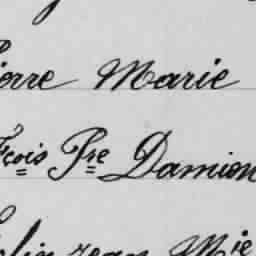 ierre Marie
Fçois Pre Damien
lin Jean Mie